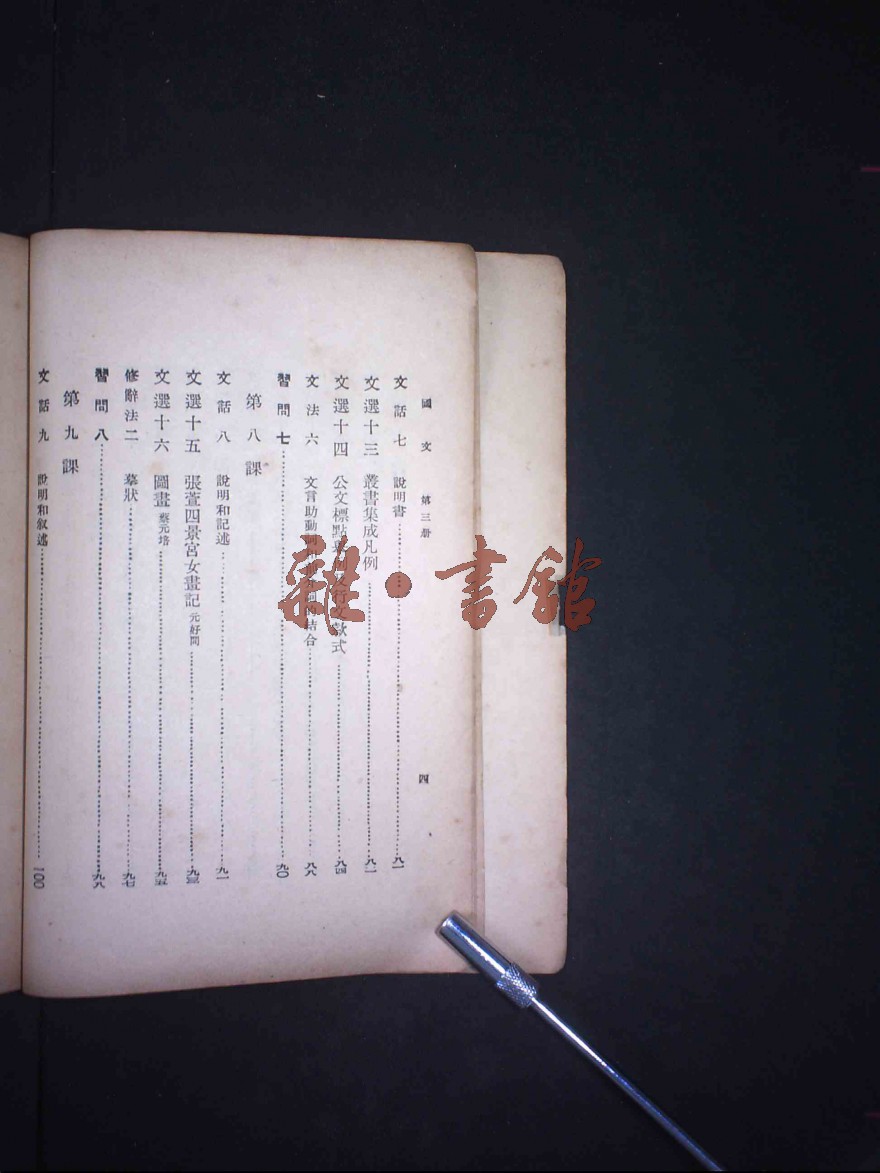 國文 第三册 四
文話七 說明書 八一
文選十三 叢書集成凡例 八一
文選十四 公文標點 行文款式 八四
文法六 文言助動詞 結合 八八
習問七 九〇
第八課
文話八 說明和記述 九一
文選十五 張萱四景宮女畫記 元好問 九三
文選十六 圖畫 蔡元培 九五
修辭法二 摹狀 九七
習問八 九八
第九課
文話九 說明和叙述 一〇〇
雜·書館